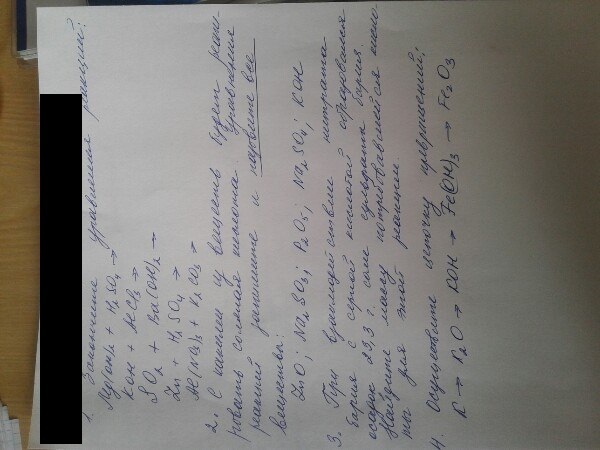 1. Закончите уравнения реакций:
Mg(OH)₂ + H₂SO₄ →
KOH + AlCl₃ →
SO₂ + Ba(OH)₂ →
Zn + H₂SO₄ →
Al(NO₃)₃ + K₂CO₃ →
2. С какими из веществ будет реаги-
ровать соляная кислота. Уравнения
реакций запишите и назовите все
вещества:
ZnO; Na₂SO₃; P₂O₅; Na₂SO₄; KOH
3. При взаимодействии нитрата
бария с серной кислотой образовался
осадок 23,3 г. соли сульфата бария
Найдите массу потребовавшейся кисло
ты для этой реакции.
4. Осуществите цепочку превращений:
K → K₂O → KOH → Fe(OH)₃ → Fe₂O₃